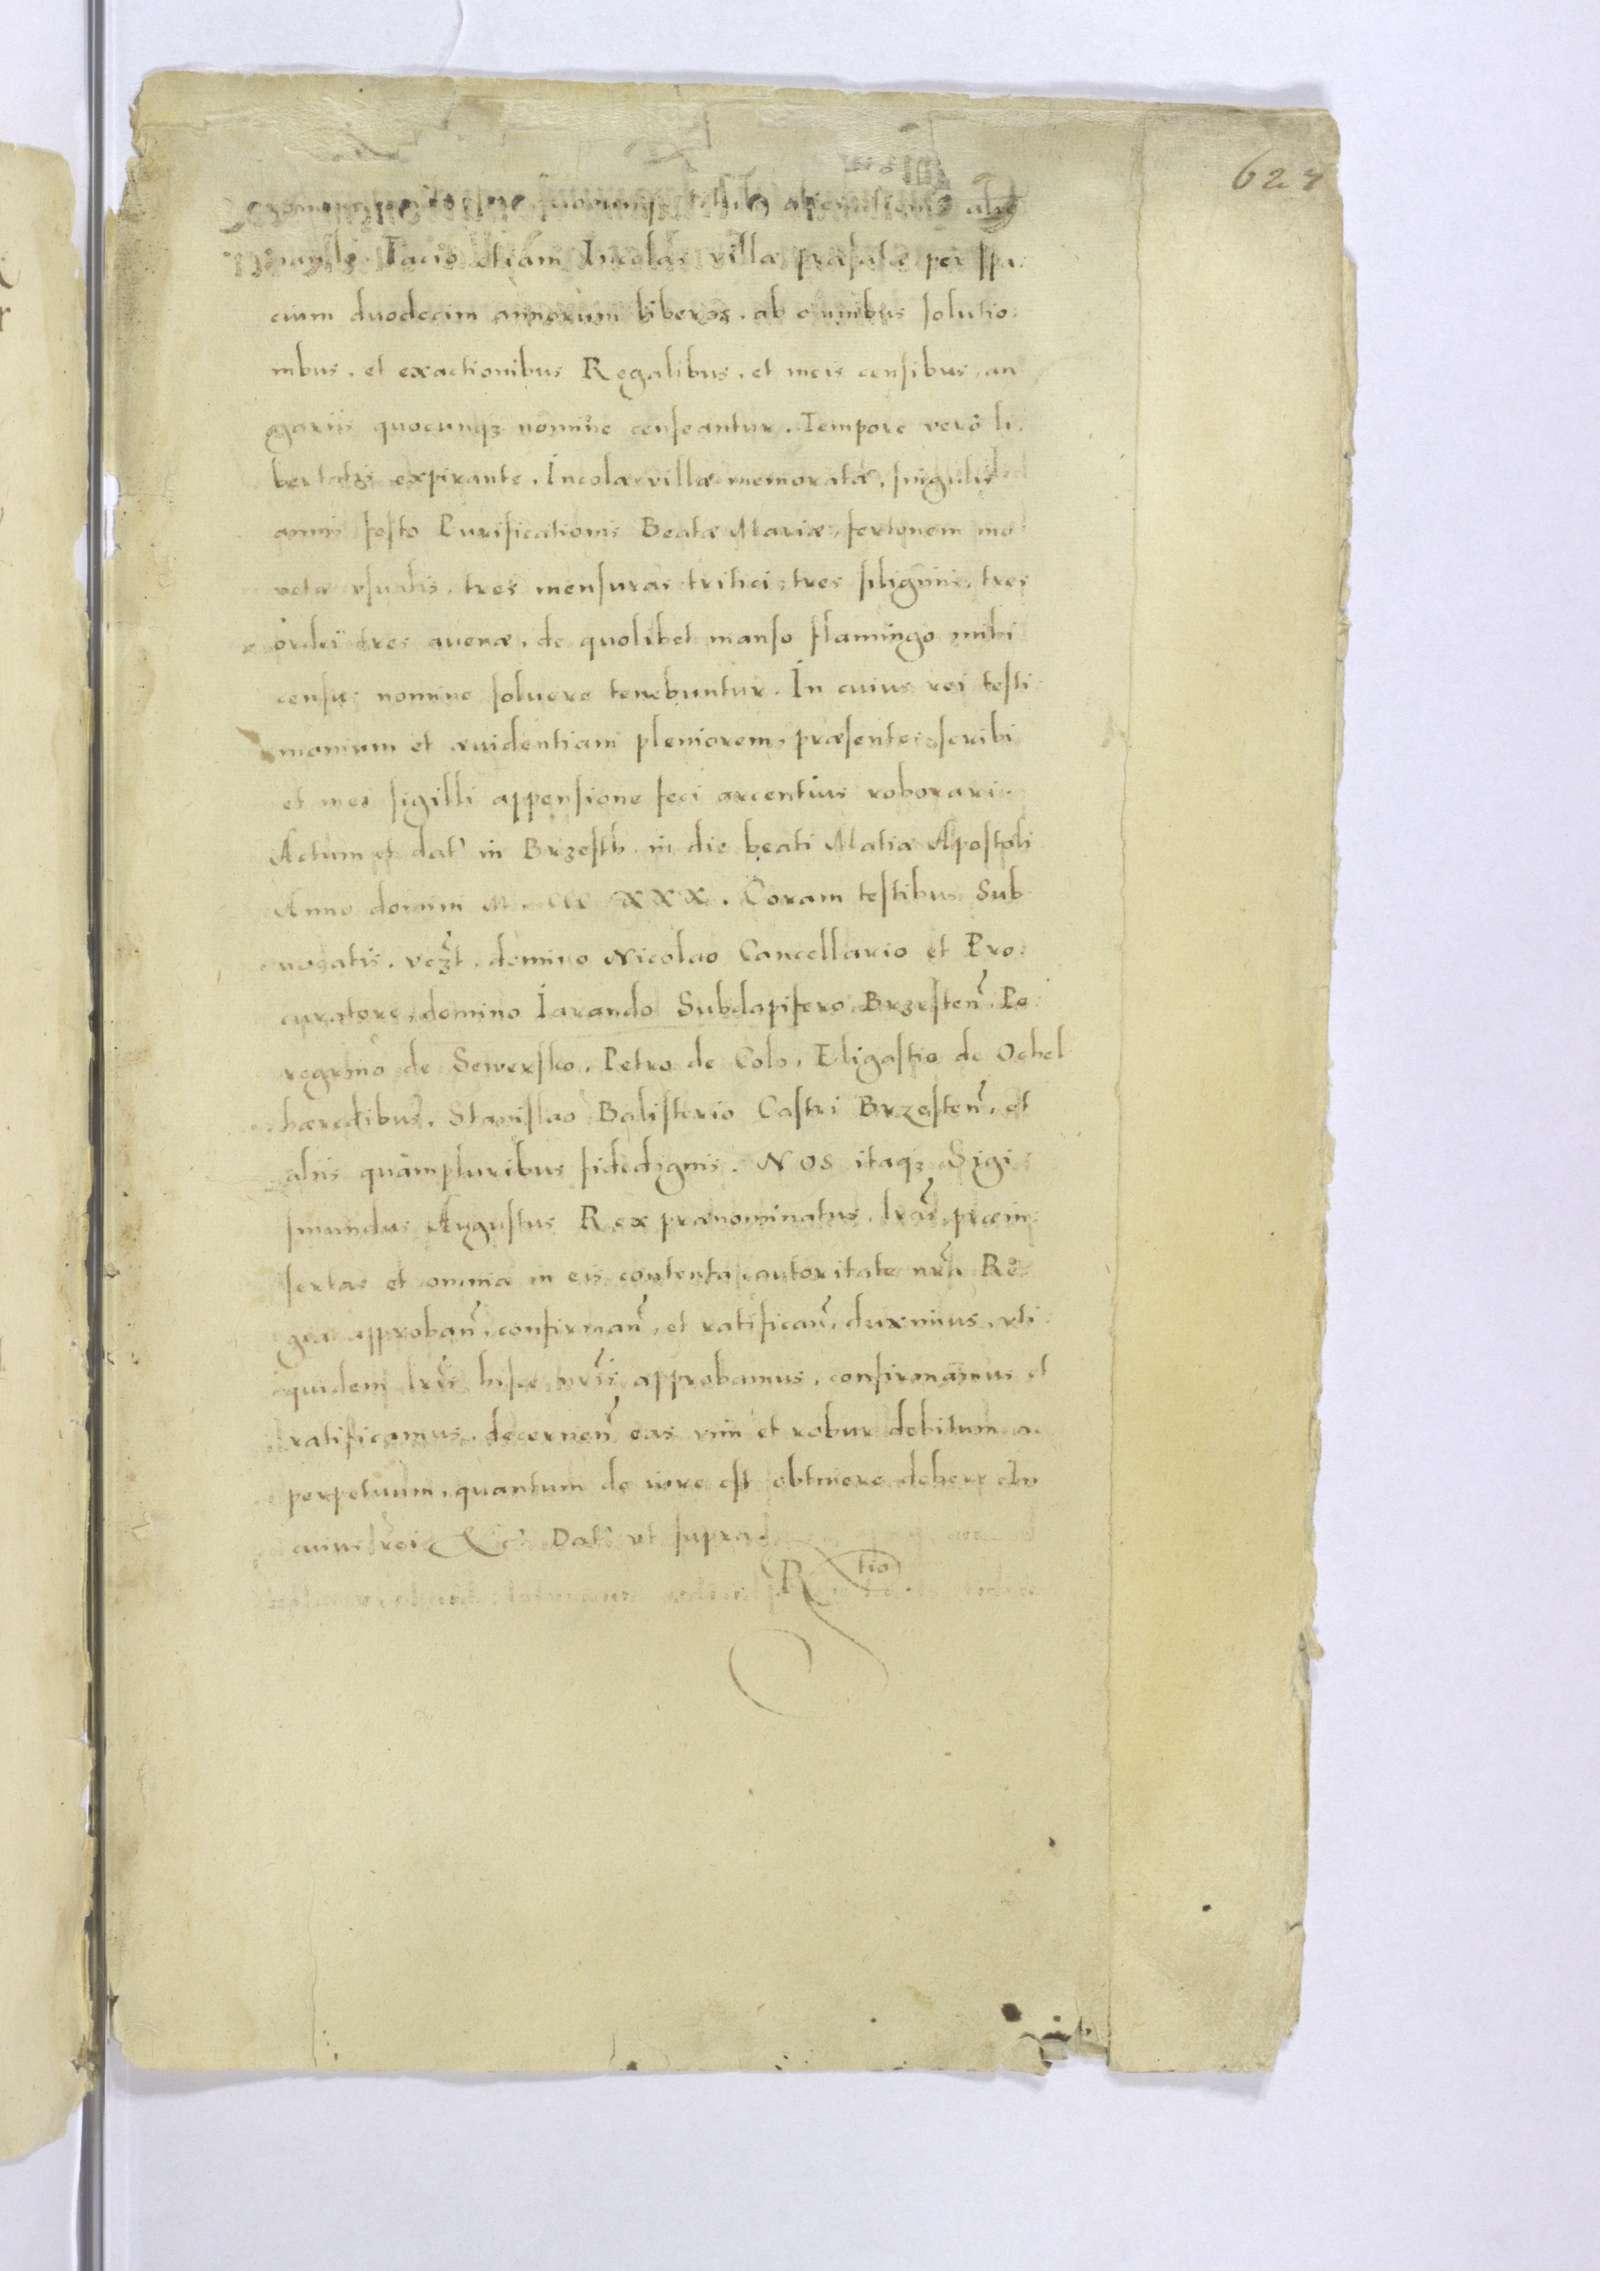 627
Facio etiam Incolas villæ præfatæ per spa:
cium duodecim annorum liberos. ab omnibus solutio:
nibus. et exactionibus Regalibus. et meis censibus, an
gariis quocunqȝ nomine censeantur. Tempore verò li:
bertatis expirante. Incolæ villæ memoratæ, singulis
annis festo Purificationis Beatæ Mariæ, fertonem mo
netæ vsualis, tres mensuras tritici, tres siliginis, tres
ordei tres auenæ. de quolibet manso flamingo mihi
census nomine soluere tenebuntur. In cuius rei testi
monium et æuidentiam pleniorem, præsentes scribi
et mei sigilli appensione feci arcentius roborari.
Actum et dat' in Brzesth. in die beati Matiæ Apostoli
Anno domini M. CCC XXX. Coram testibus Sub
notatis. vczt. domino Nicolao Cancellario et Pro:
curatore, domino Iarando Subdapifero Brzesten̄. Pe:
regrino de Sewersko. Petro de Colo. Eligastio de Ochel
hæredibus. Stanislao Balisterio Castri Brzesten̄. et
aliis quàmpluribus fidedignis. NOS itaqȝ Sigi:
smundus Augustus Rex prænominatus. lr̄as præin:
sertas et omnia in eis contenta, autoritate nr̄a Re
gia approban̄. confirman̄. et ratifican̄. duximus. vti
quidem lr̄is hisce nr̄is approbamus. confirmamus et
ratificamus. decernen̄ eas vim et robur debitum ac
perpetuum, quantum de iure est obtinere debere. In
cuius rei &c. Dat' vt supra.
Rtio